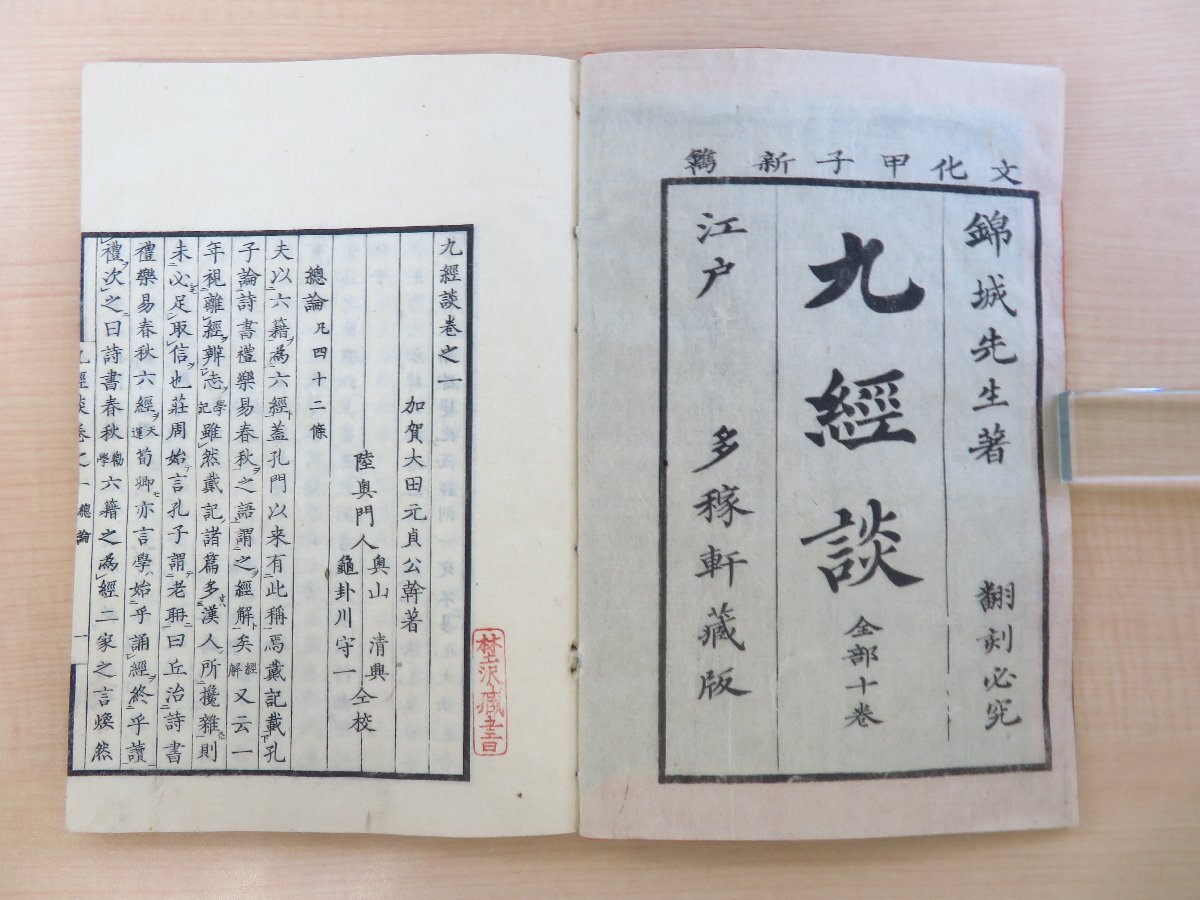 文化甲子新鐫
錦城先生著 翻刻必究
九經談 全部十卷
江戸 多稼軒藏版
九經談卷之一
加賀大田元貞公幹著
陸奥門人 奥山 清興 仝校
龜卦川守一
總論 凡四十二條
夫以六籍為六經蓋孔門以来有此稱焉戴記載孔
子論詩書禮樂易春秋之語謂之經解矣 經解 又云一
年視離經辨志 學記 雖然戴記諸篇多漢人所攙雜則
未必足取信也莊周始言孔子謂老聃曰丘治詩書
禮樂易春秋六經 天運 荀卿亦言學始乎誦經終乎讀
禮次之曰詩書春秋 勸學 六籍之為經二家之言煥然
九經談卷之一 總論 一
藏書